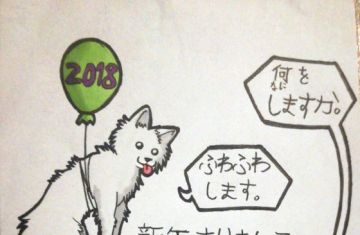 2018
何を
なに
しますか。
ふわふわ
します。